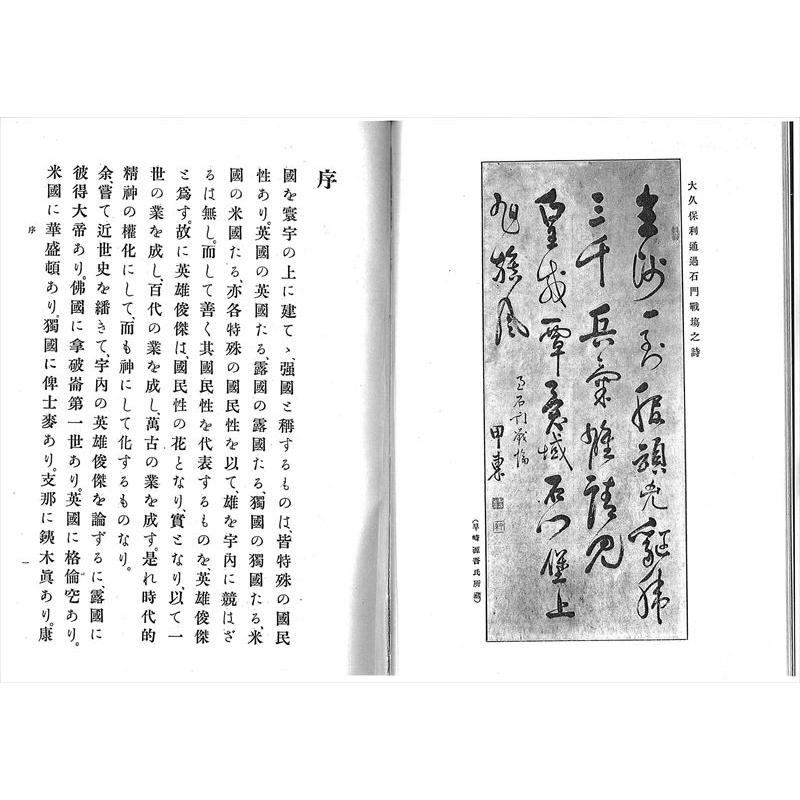 大久保利通過石門戰塲之詩
王師一到服頑兇貔貅
三千兵氣雄請見
皇威覃異域石門堡上
旭旗風
甲東
序
國を寰宇の上に建てゝ、强國と稱するものは、皆特殊の國民
性あり。英國の英國たる、露國の露國たる、獨國の獨國たる、米
國の米國たる、亦各特殊の國民性を以て雄を宇內に競はざ
るは無し。而して善く其國民性を代表するものを、英雄俊傑
と爲す。故に英雄俊傑は、國民性の花となり、實となり、以て一
世の業を成し、百代の業を成し、萬古の業を成す。是れ時代的
精神の權化にして、而も神にして化するものなり。
余、嘗て近世史を繙きて、宇內の英雄俊傑を論ずるに、露國に
彼得大帝あり。佛國に拿破崙第一世あり。英國に格倫空あり。
米國に華盛頓あり。獨國に俾士麥あり。支那に鐵木眞あり。康
序
一